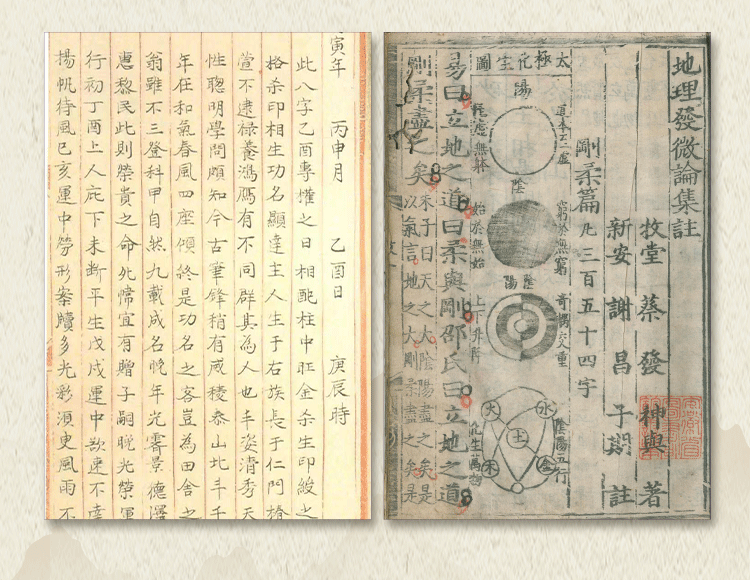 地理發微論集註
牧堂蔡發神與著
新安謝昌子期註
剛柔篇凡三百五十四字
太極化生圖
陽
陰
窮於無窮
始於無始
陰陽
上下升降
陰陽五行
化生萬物
火水
土
木金
易曰立地之道曰柔與剛邵氏曰立地之道
剛柔盡之矣
朱子曰天之大陰陽盡之矣是
以氣言地之大剛柔盡之矣是
寅年 丙申月 乙酉日 庚辰時
此八字乙酉專權之日相配柱中旺金杀生印綬之
格杀印相生功名顯達主人生于右族長于仁門椿
萱不逮祿養鴻鴈有不同群其為人也丰姿清秀天
性聰明學問頗知今古筆鋒稍有威稜泰山北斗千
年在和氣春風四座傾終是功名之客豈為田舍之
翁雖不三登科甲自然九載成名晚年光霽景德澤
惠黎民此則榮貴之命死宜有贈子嗣晚光榮運
行初丁酉上人庇下未斷平生戊戌運中欲速不達
揚帆待風己亥運中勞形案牘多光彩須更風雨不